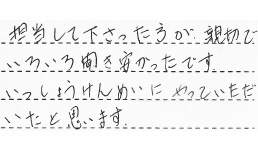 担当して下さった方が、親切で
いろいろ聞き安かったです。
いっしょうけんめいに やっていただ
いたと思います。